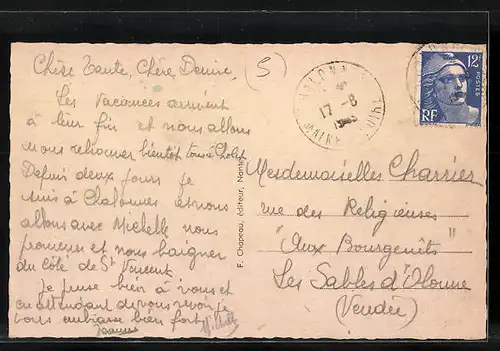 Chère Tante, Chère Denise, (5)
Les Vacances arrivent
à leur fin et nous allons
nous retrouver bientôt tous à Cholet
Depuis deux jours je
suis à Chalonnes et nous
allons avec Michelle nous
promener et nous baigner
du côté de St Vincent.
Je pense bien à vous et
en attendant de vous revoir je
vous embrasse bien fort
F. Chapeau, éditeur, Nantes
17-8
12F
POSTES
RF
Mesdemoiselles Charrier
rue des Religieuses
"Aux Bourgenêts"
Les Sables d'Olonne
(Vendée)